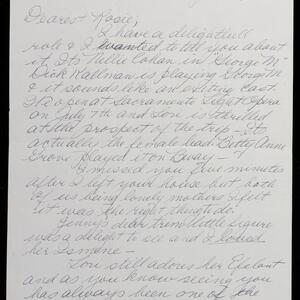 Dearest Rosie;
I have a delightfull
role & I wanted to tell you about
it. Its Nellie Cohan in "George M"
Dick Kallman is playing George M
& it sounds like an exiting cast.
I open at Sacramento Light Opera
on July 7th and Lou is thrilled
at the prospect of the trip - Its
actually the female lead. Betty Anne
Grove played it on Bway -
I missed you five minutes
after I left your house but both
of us being lonely mothers I felt
it was the right thing to do.
Jenny's dear trem little figure
was a delight to see and I loved
her
still adores her Efelant
and as you know seeing you
has always been one of the